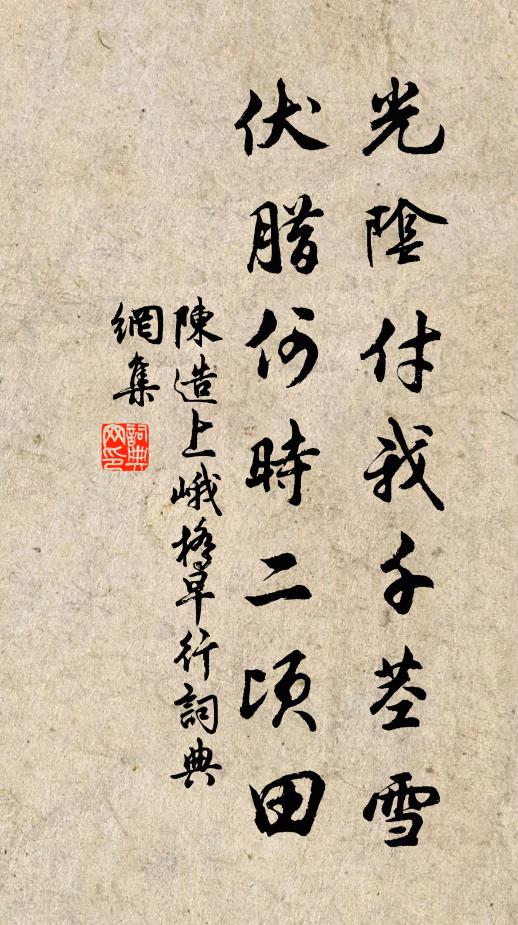 光陰付我千莖雪
伏腊何時二頃田
陳造上峨橋早行詞典
網集
詞典
网印